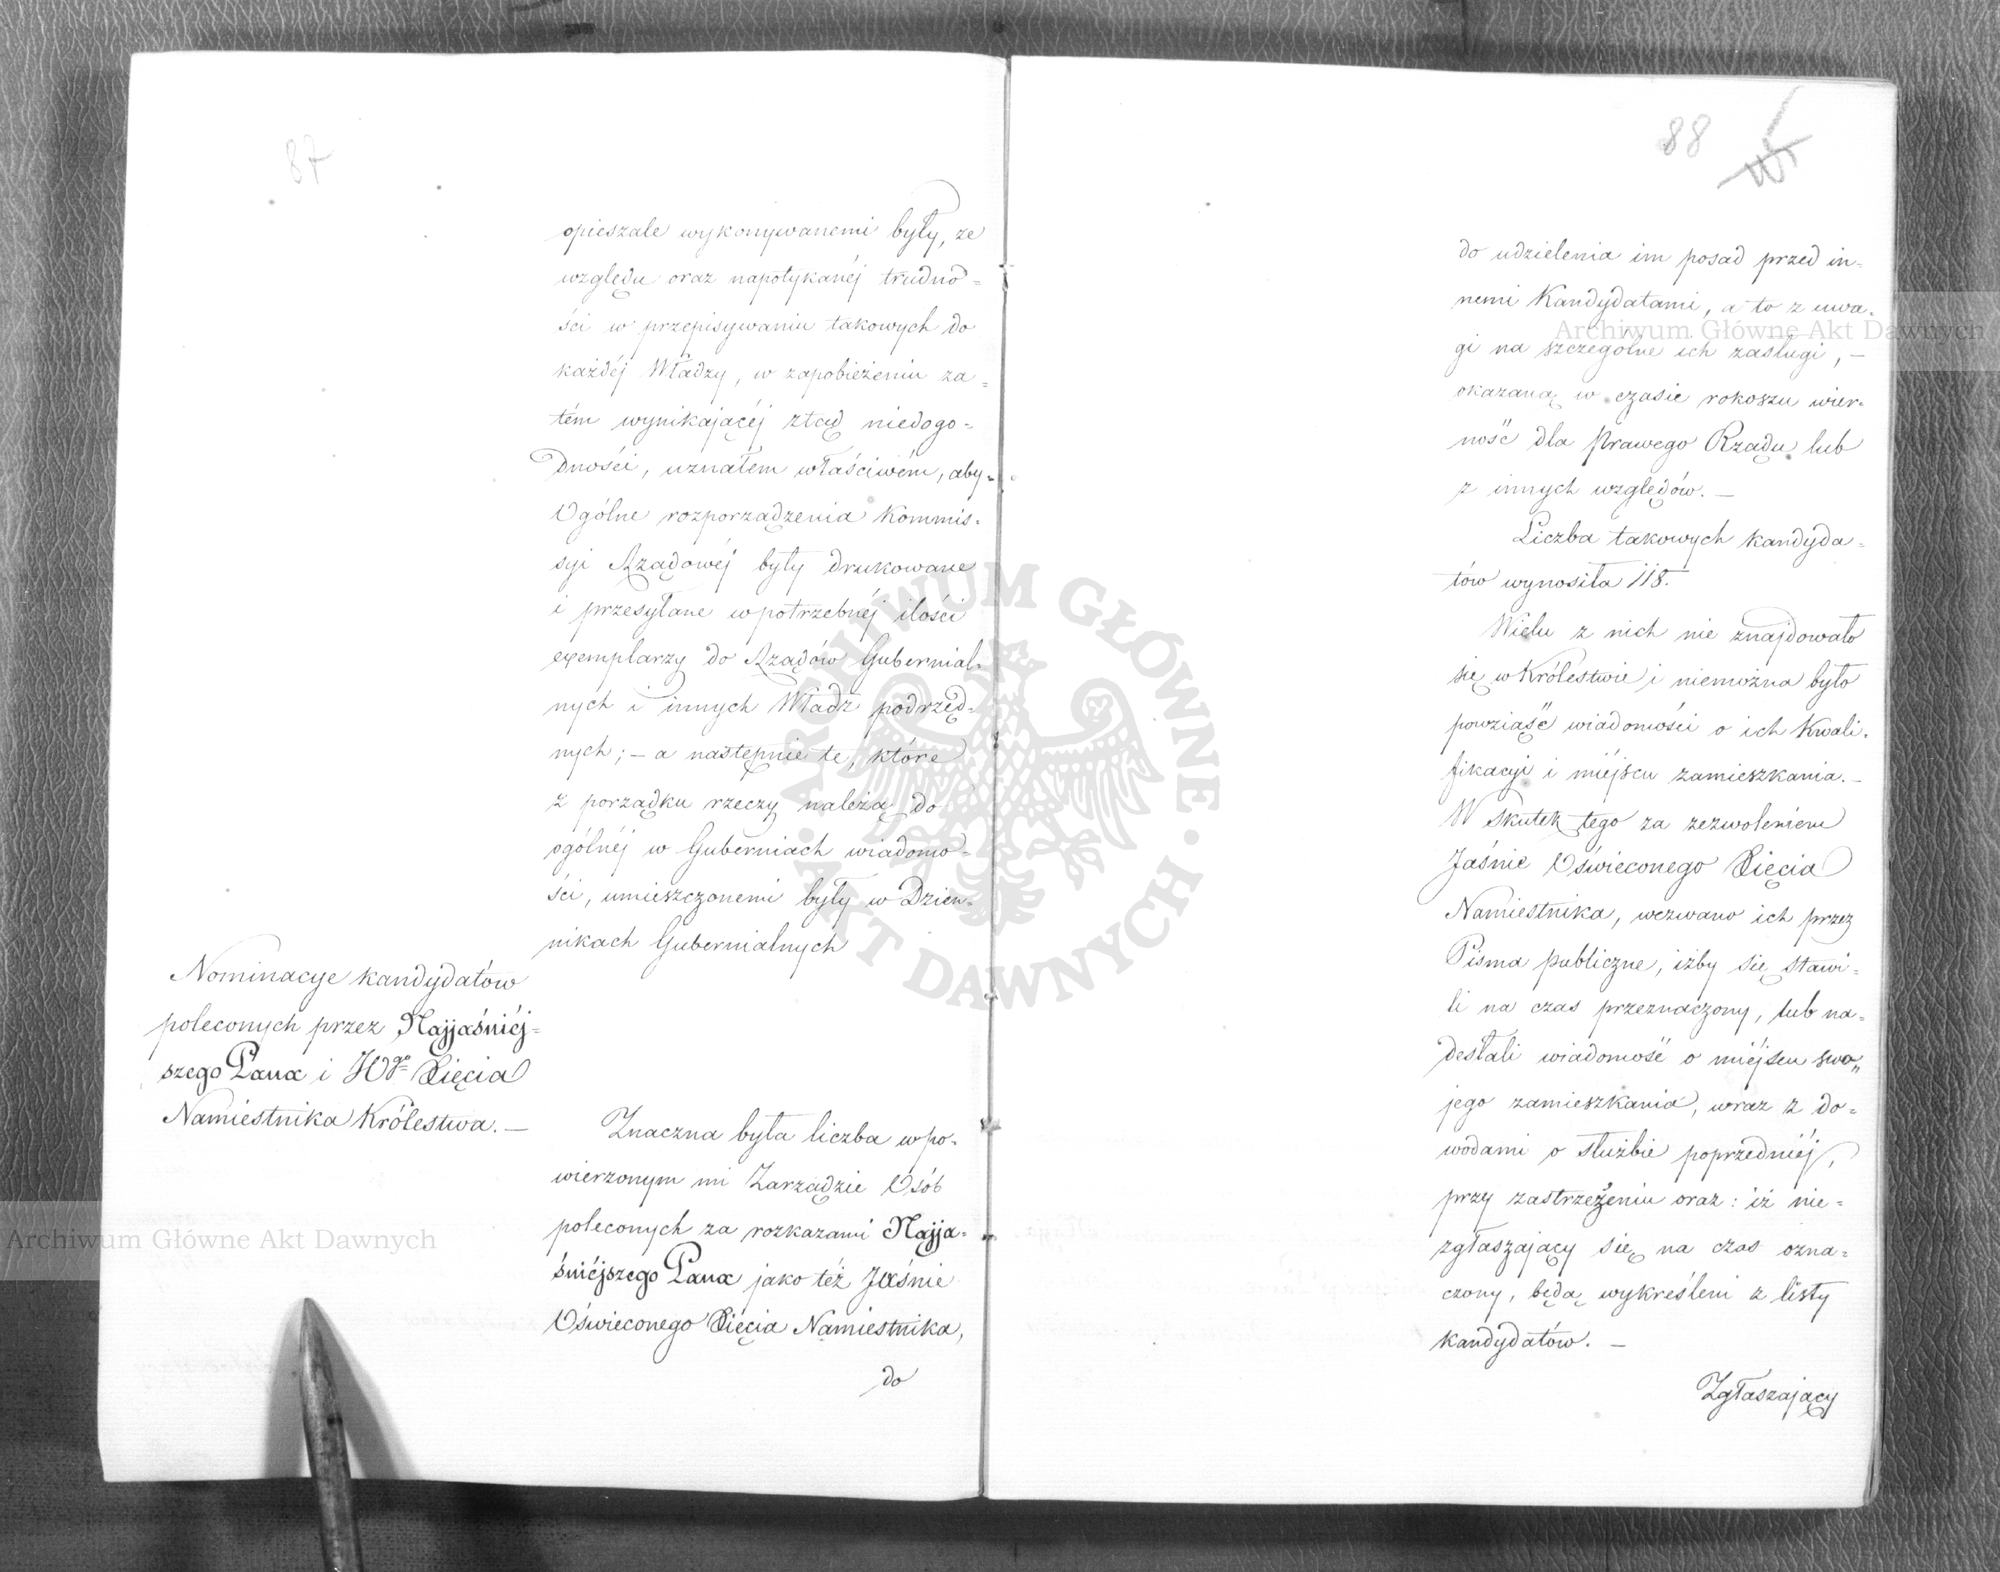 87
opieszale wykonywanemi były, ze
względu oraz napotykanéj trudno=
ści w przepisywaniu takowych do
każdéj Władzy, w zapobieżeniu za=
tém wynikającéj ztąd niedogo=
dności, uznałem właściwém, aby
Ogólne rozporządzenia Kommis=
syi Rządowéj były drukowane
i przesyłane w potrzebnéj ilości
exemplarzy do Rządów Gubernial=
nych i innych Władz podrzęd=
nych; – a następnie te, które
z porządku rzeczy należą do
ogólnéj w Guberniach wiadomo=
ści, umieszczonemi były w Dzien=
nikach Gubernialnych
Nominacye kandydatów
poleconych przez Najjaśniéj=
szego Pana i JOgo Xięcia
Namiestnika Królestwa. –
Znaczna była liczba w po=
wierzonym mi Zarządzie Osób
poleconych za rozkazami Najja=
śniéjszego Pana jako téż Jaśnie
Oświeconego Xięcia Namiestnika,
do
88
do udzielenia im posad przed in=
nemi Kandydatami, a to z uwa=
gi na szczególne ich zasługi, –
okazaną w czasie rokoszu wier=
ność dla Prawego Rządu lub
z innych względów. –
Liczba takowych kandyda=
tów wynosiła 118.
Wielu z nich nie znajdowało
się w Królestwie i niemożna było
powziąść wiadomości o ich Kwali=
fikacyi i miéjscu zamieszkania. –
W skutek tego za zezwoleniem
Jaśnie Oświeconego Xięcia
Namiestnika, wezwano ich przez
Pisma publiczne, iżby się stawi=
li na czas przeznaczony, lub na=
desłali wiadomość o miéjscu swo„
jego zamieszkania, wraz z do=
wodami o służbie poprzedniéj,
przy zastrzeżeniu oraz: iż nie=
zgłaszający się na czas ozna=
czony, będą wykreśleni z listy
kandydatów. –
Zgłaszający
Archiwum Główne Akt Dawnych
Archiwum Główne Akt Dawnych
ARCHIWUM GŁÓWNE · AKT DAWNYCH ·